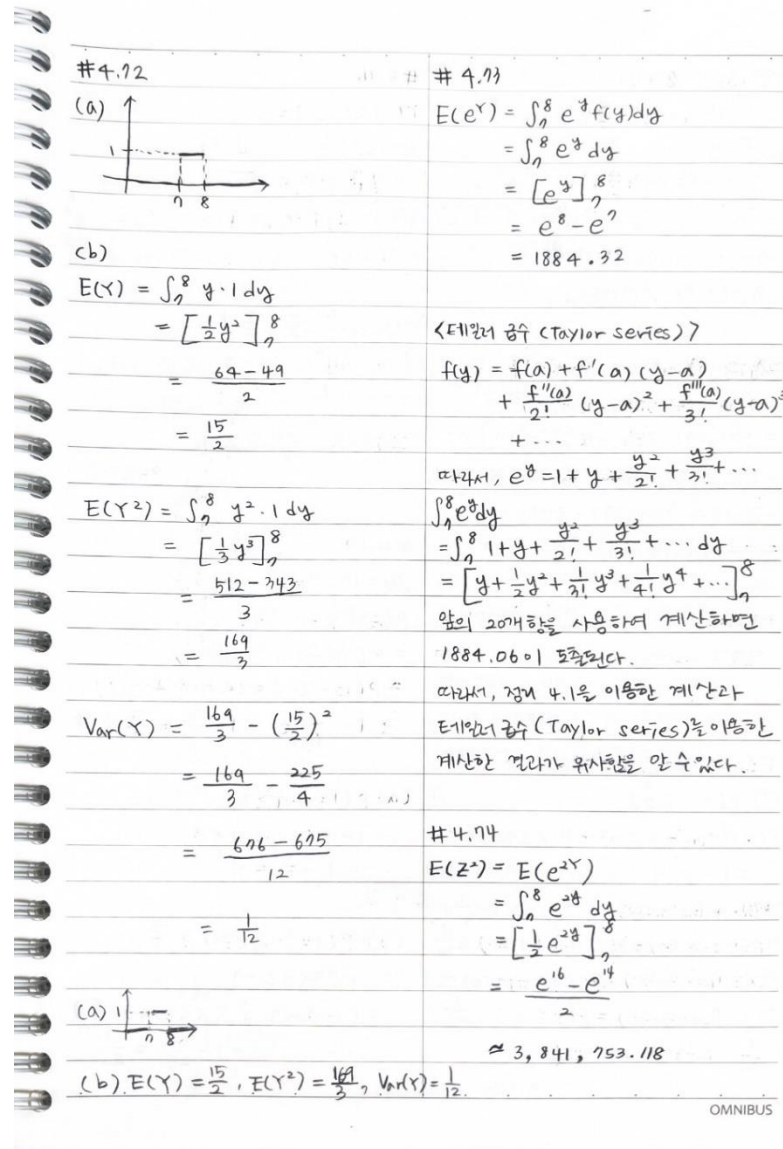 #4.72
(a)
1
7 8
(b)
E(Y) = ∫₇⁸ y · 1 dy
= [½y²]₇⁸
= (64 - 49)/2
= 15/2
E(Y²) = ∫₇⁸ y² · 1 dy
= [⅓y³]₇⁸
= (512 - 343)/3
= 169/3
Var(Y) = 169/3 - (15/2)²
= 169/3 - 225/4
= (676 - 675)/12
= 1/12
(a) 1
7 8
(b) E(Y) = 15/2, E(Y²) = 169/3, Var(Y) = 1/12
# 4.73
E(e^Y) = ∫₇⁸ e^y f(y)dy
= ∫₇⁸ e^y dy
= [e^y]₇⁸
= e⁸ - e⁷
= 1884.32
<테일러 급수 (Taylor series)>
f(y) = f(a) + f'(a) (y-a)
+ f''(a)/2! (y-a)² + f'''(a)/3! (y-a)³
+ ...
따라서, e^y = 1 + y + y²/2! + y³/3! + ...
∫₇⁸ e^y dy
= ∫₇⁸ 1 + y + y²/2! + y³/3! + ... dy
= [y + ½y² + 1/3! y³ + 1/4! y⁴ + ...]₇⁸
앞의 20개 항을 사용하여 계산하면
1884.06이 도출된다.
따라서, 정의 4.1을 이용한 계산과
테일러 급수 (Taylor series)를 이용한
계산한 결과가 유사함을 알 수 있다.
#4.74
E(Z²) = E(e^2Y)
= ∫₇⁸ e^2y dy
= [½e^2y]₇⁸
= (e¹⁶ - e¹⁴)/2
≈ 3,841,753.118
OMNIBUS